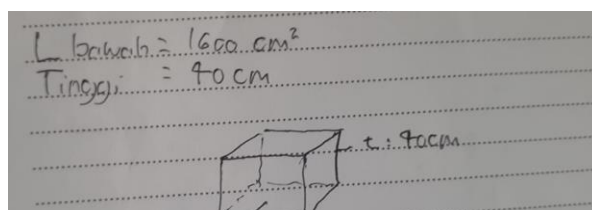 L bawah = 1600 cm²
Tinggi = 40 cm
t : 40cm